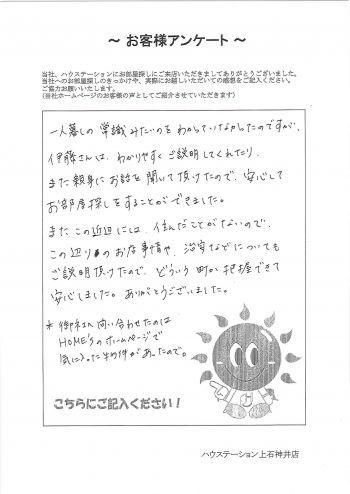 ～ お客様アンケート ～
当社、ハウステーションにお部屋探しにご来店いただきましてありがとうございました。
当社へのお部屋探しのきっかけや、実際にお越しいただいての感想をご記入ください。
ご協力お願いいたします。
(当社ホームページのお客様の声としてご紹介させていただきます)
一人暮しの常識みたいのをわかっていなかったのですが、
伊藤さんは、わかりやすくご説明してくれたり、
また親身にお話を聞いて頂けたので、安心して
お部屋探しをすることができました。
また この近辺には、住んだことがないので、
この辺りのお店事情や、治安などについても
ご説明頂けたので、どういう町か把握できて
安心しました。ありがとうございました。
* 御社に問い合わせたのは
HOME'Sのホームページで
気に入った物件があったので。
こちらにご記入ください！
ハウステーション上石神井店